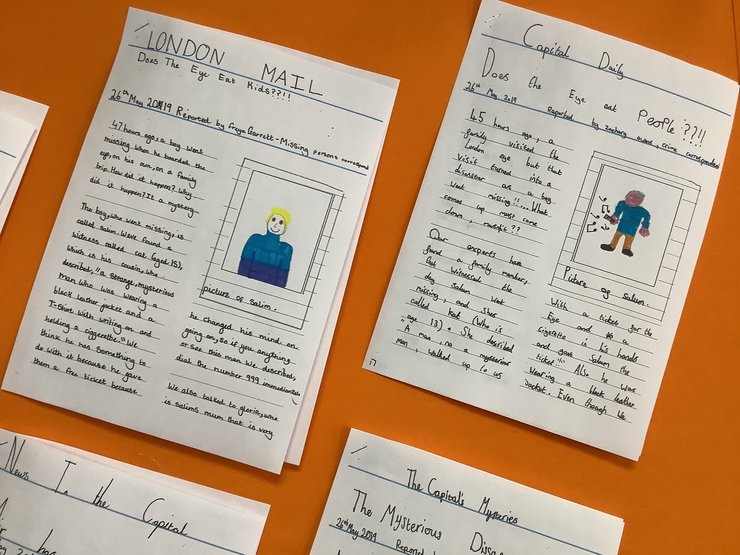 LONDON MAIL
Does The Eye Eat Kids??!!
26th May 2019 Reported by Freya Garrett-Missing persons correspond
47 hours ago, a boy went
missing when he boarded the
eye, on his own, on a family
trip. How did it happen? Why
did it happen? It a mystery
The boy, who went missing, is
called Salim. We've found a
witness called cat (aged 15),
which is his cousin, who
described, "a strange, mysterious
man who was wearing a
black leather jacket and a
T-Shirt with writing on and
holding a ciggerette." We
think he has something to
do with it because he gave
them a free ticket because
picture of Salim.
he changed his mind, on
going on, so if you anything
or see this man we described,
dial the number 999 immediately
We also talked to gloria, who
is Salims mum that is very
Capital Daily
Does the Eye eat PeoPle ??!!
26th May 2019 Reported by, crime correspondent
45 hours ago, a
family visited the
London eye but that
visit turned into a
disaster as a boy
went missing!!... What
comes up must come
down, right??
Our experts have
found a family member,
that witnessed the
day Salim went
missing, and she's
called kat (who is
age 13). She described
A man, no a mysterious
man, walked up to us
Picture of Salim.
With a ticket for the
Eye and a
cigerette in his hands
and gave Salim the
ticket". Also he was
wearing a black leather
Jacket. Even though We
News In the Capital
The Capital's Mysteries
The Mysterious
26th May 2019 Reported